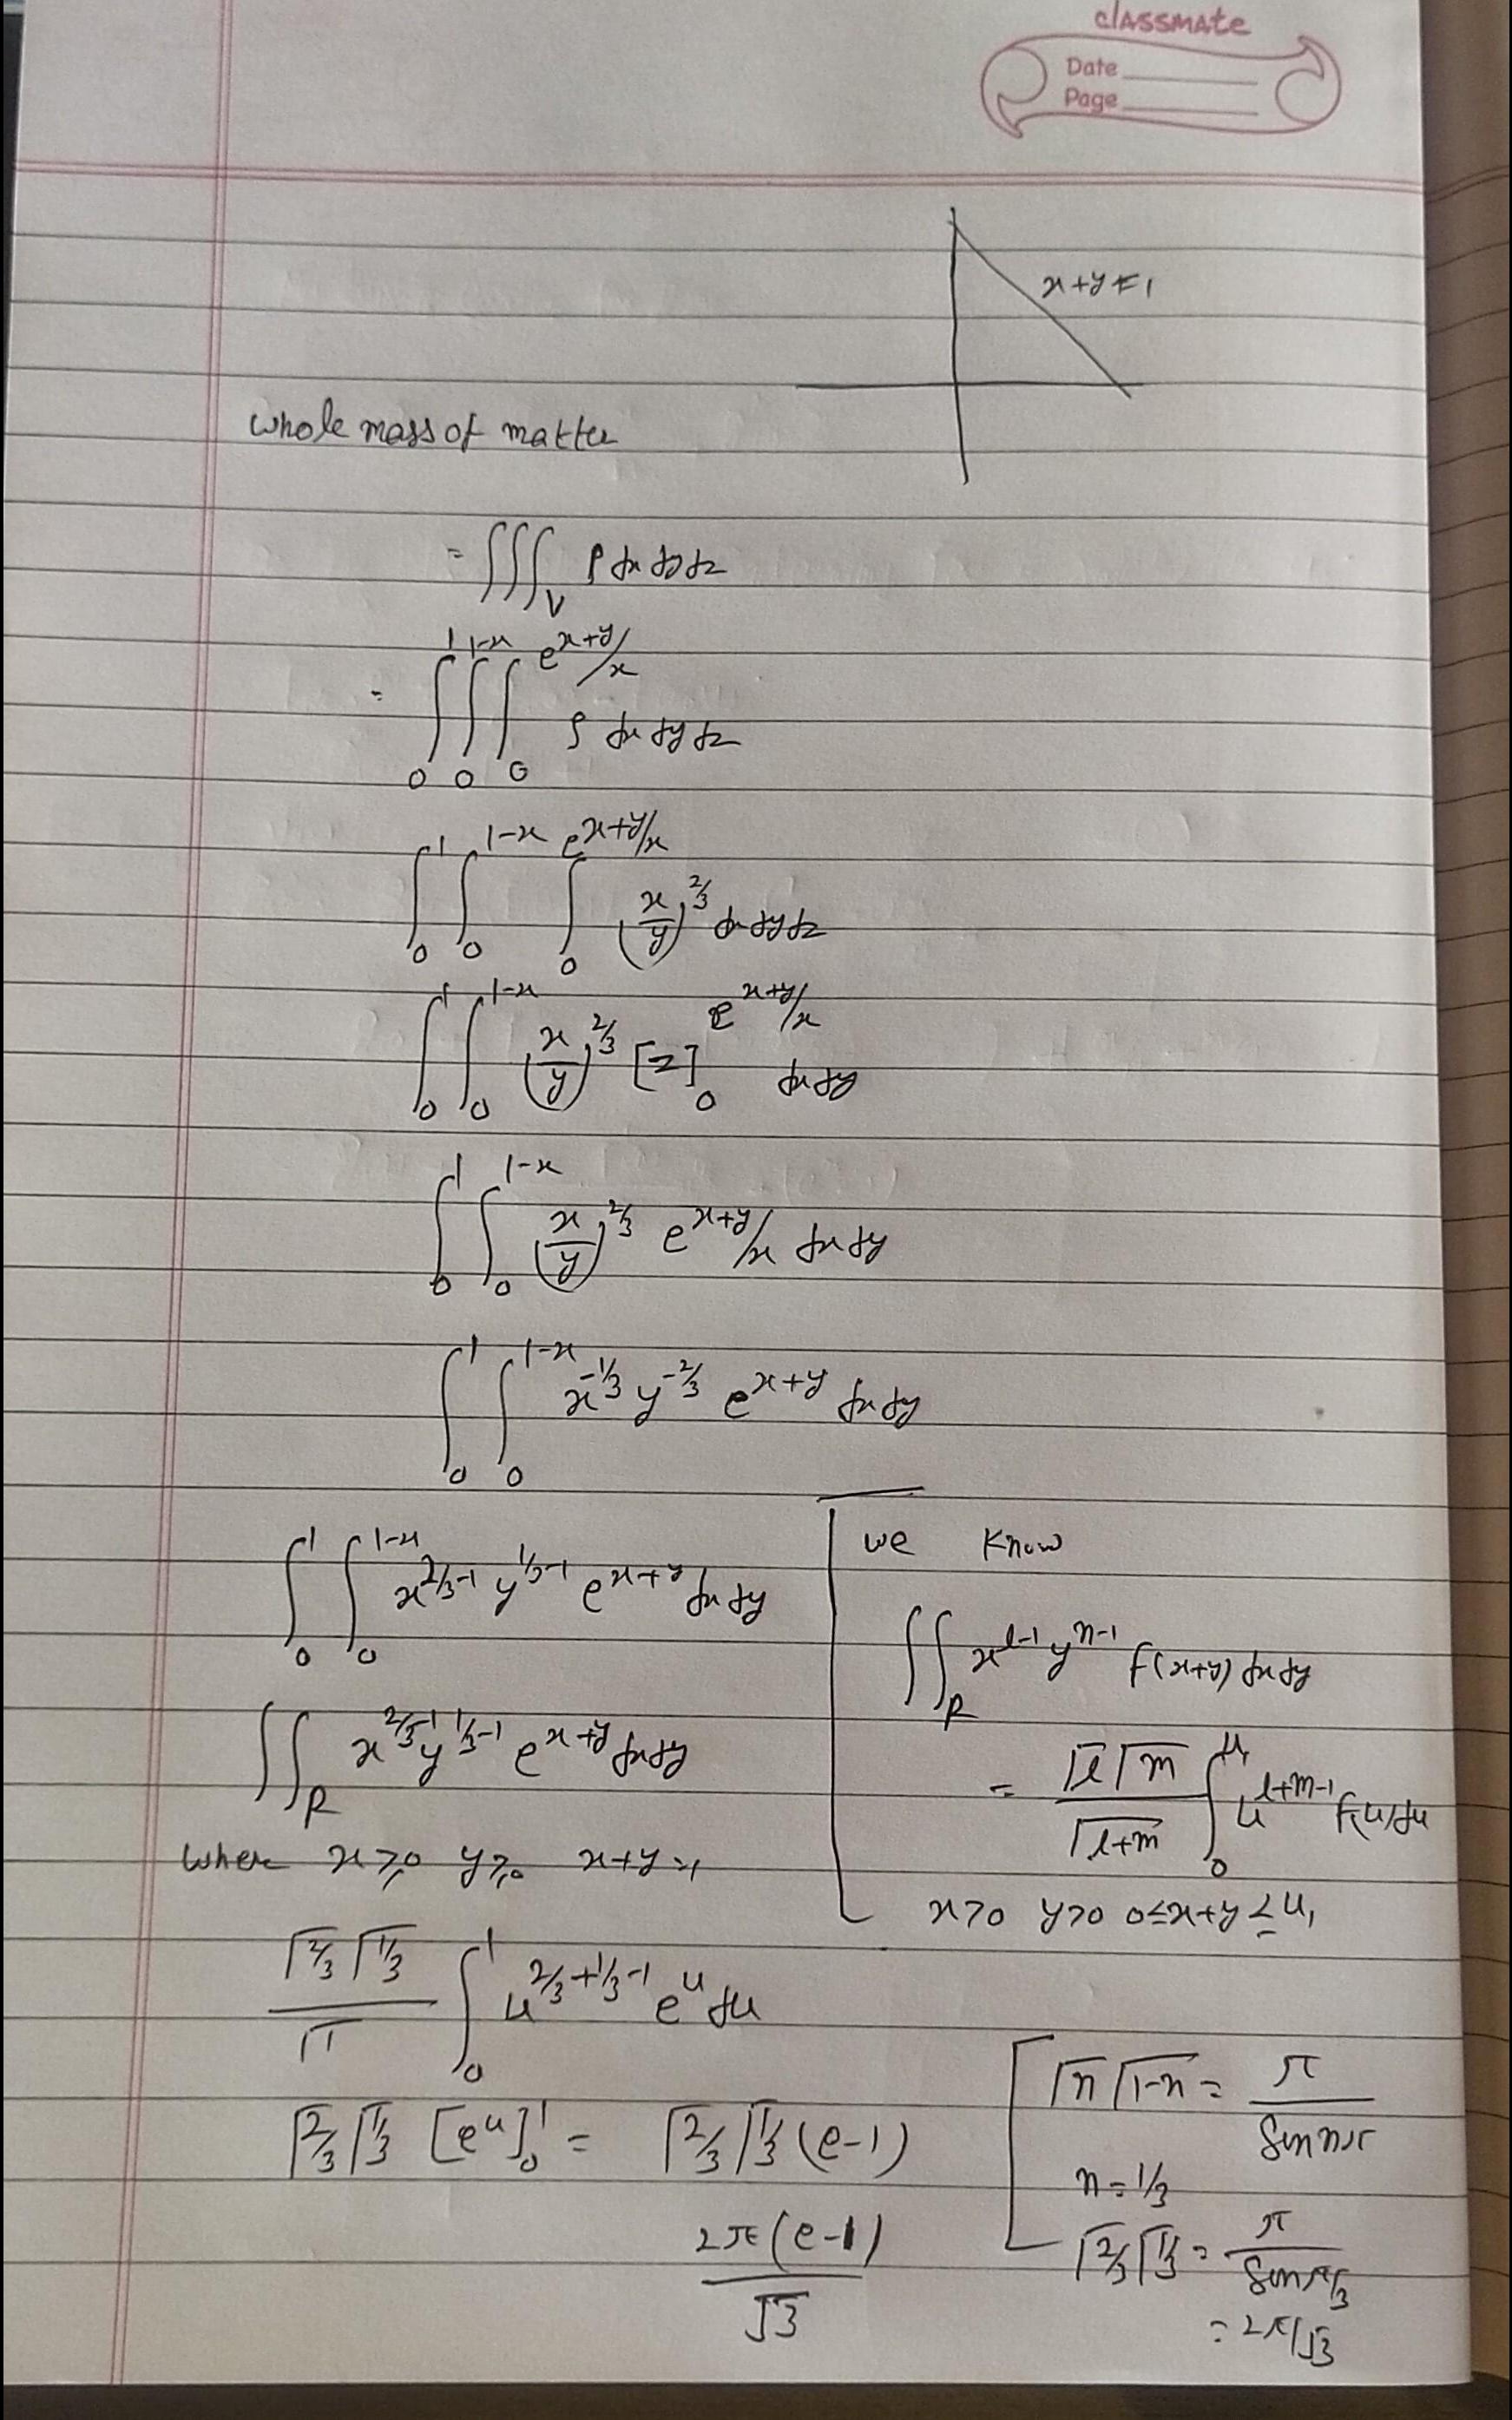 classmate
Date
Page
x+y=1
whole mass of matter
= ∭_V ρ dx dy dz
= ∫_0^1 ∫_0^{1-x} ∫_0^{e^{x+y}/x} ρ dx dy dz
∫_0^1 ∫_0^{1-x} ∫_0^{e^{x+y}/x} (x/y)^{2/3} dx dy dz
∫_0^1 ∫_0^{1-x} (x/y)^{2/3} [z]_0^{e^{x+y}/x} dx dy
∫_0^1 ∫_0^{1-x} (x/y)^{2/3} e^{x+y}/x dx dy
∫_0^1 ∫_0^{1-x} x^{-1/3} y^{-2/3} e^{x+y} dx dy
∫_0^1 ∫_0^{1-x} x^{2/3-1} y^{1/3-1} e^{x+y} dx dy
∬_R x^{2/3-1} y^{1/3-1} e^{x+y} dx dy
where x≥0 y≥0 x+y≤1
we know
∬_R x^{l-1} y^{n-1} f(x+y) dx dy
= Γl Γm / Γl+m ∫_0^{u₁} u^{l+m-1} f(u) du
x>0 y>0 0≤x+y≤u₁
Γ2/3 Γ1/3 / Γ1 ∫_0^1 u^{2/3+1/3-1} e^u du
Γ2/3 Γ1/3 [e^u]_0^1 = Γ2/3 Γ1/3 (e-1)
2π(e-1)/√3
Γn Γ1-n = π/Sin nπ
n=1/3
Γ2/3 Γ1/3 = π/Sin π/3
= 2π/√3